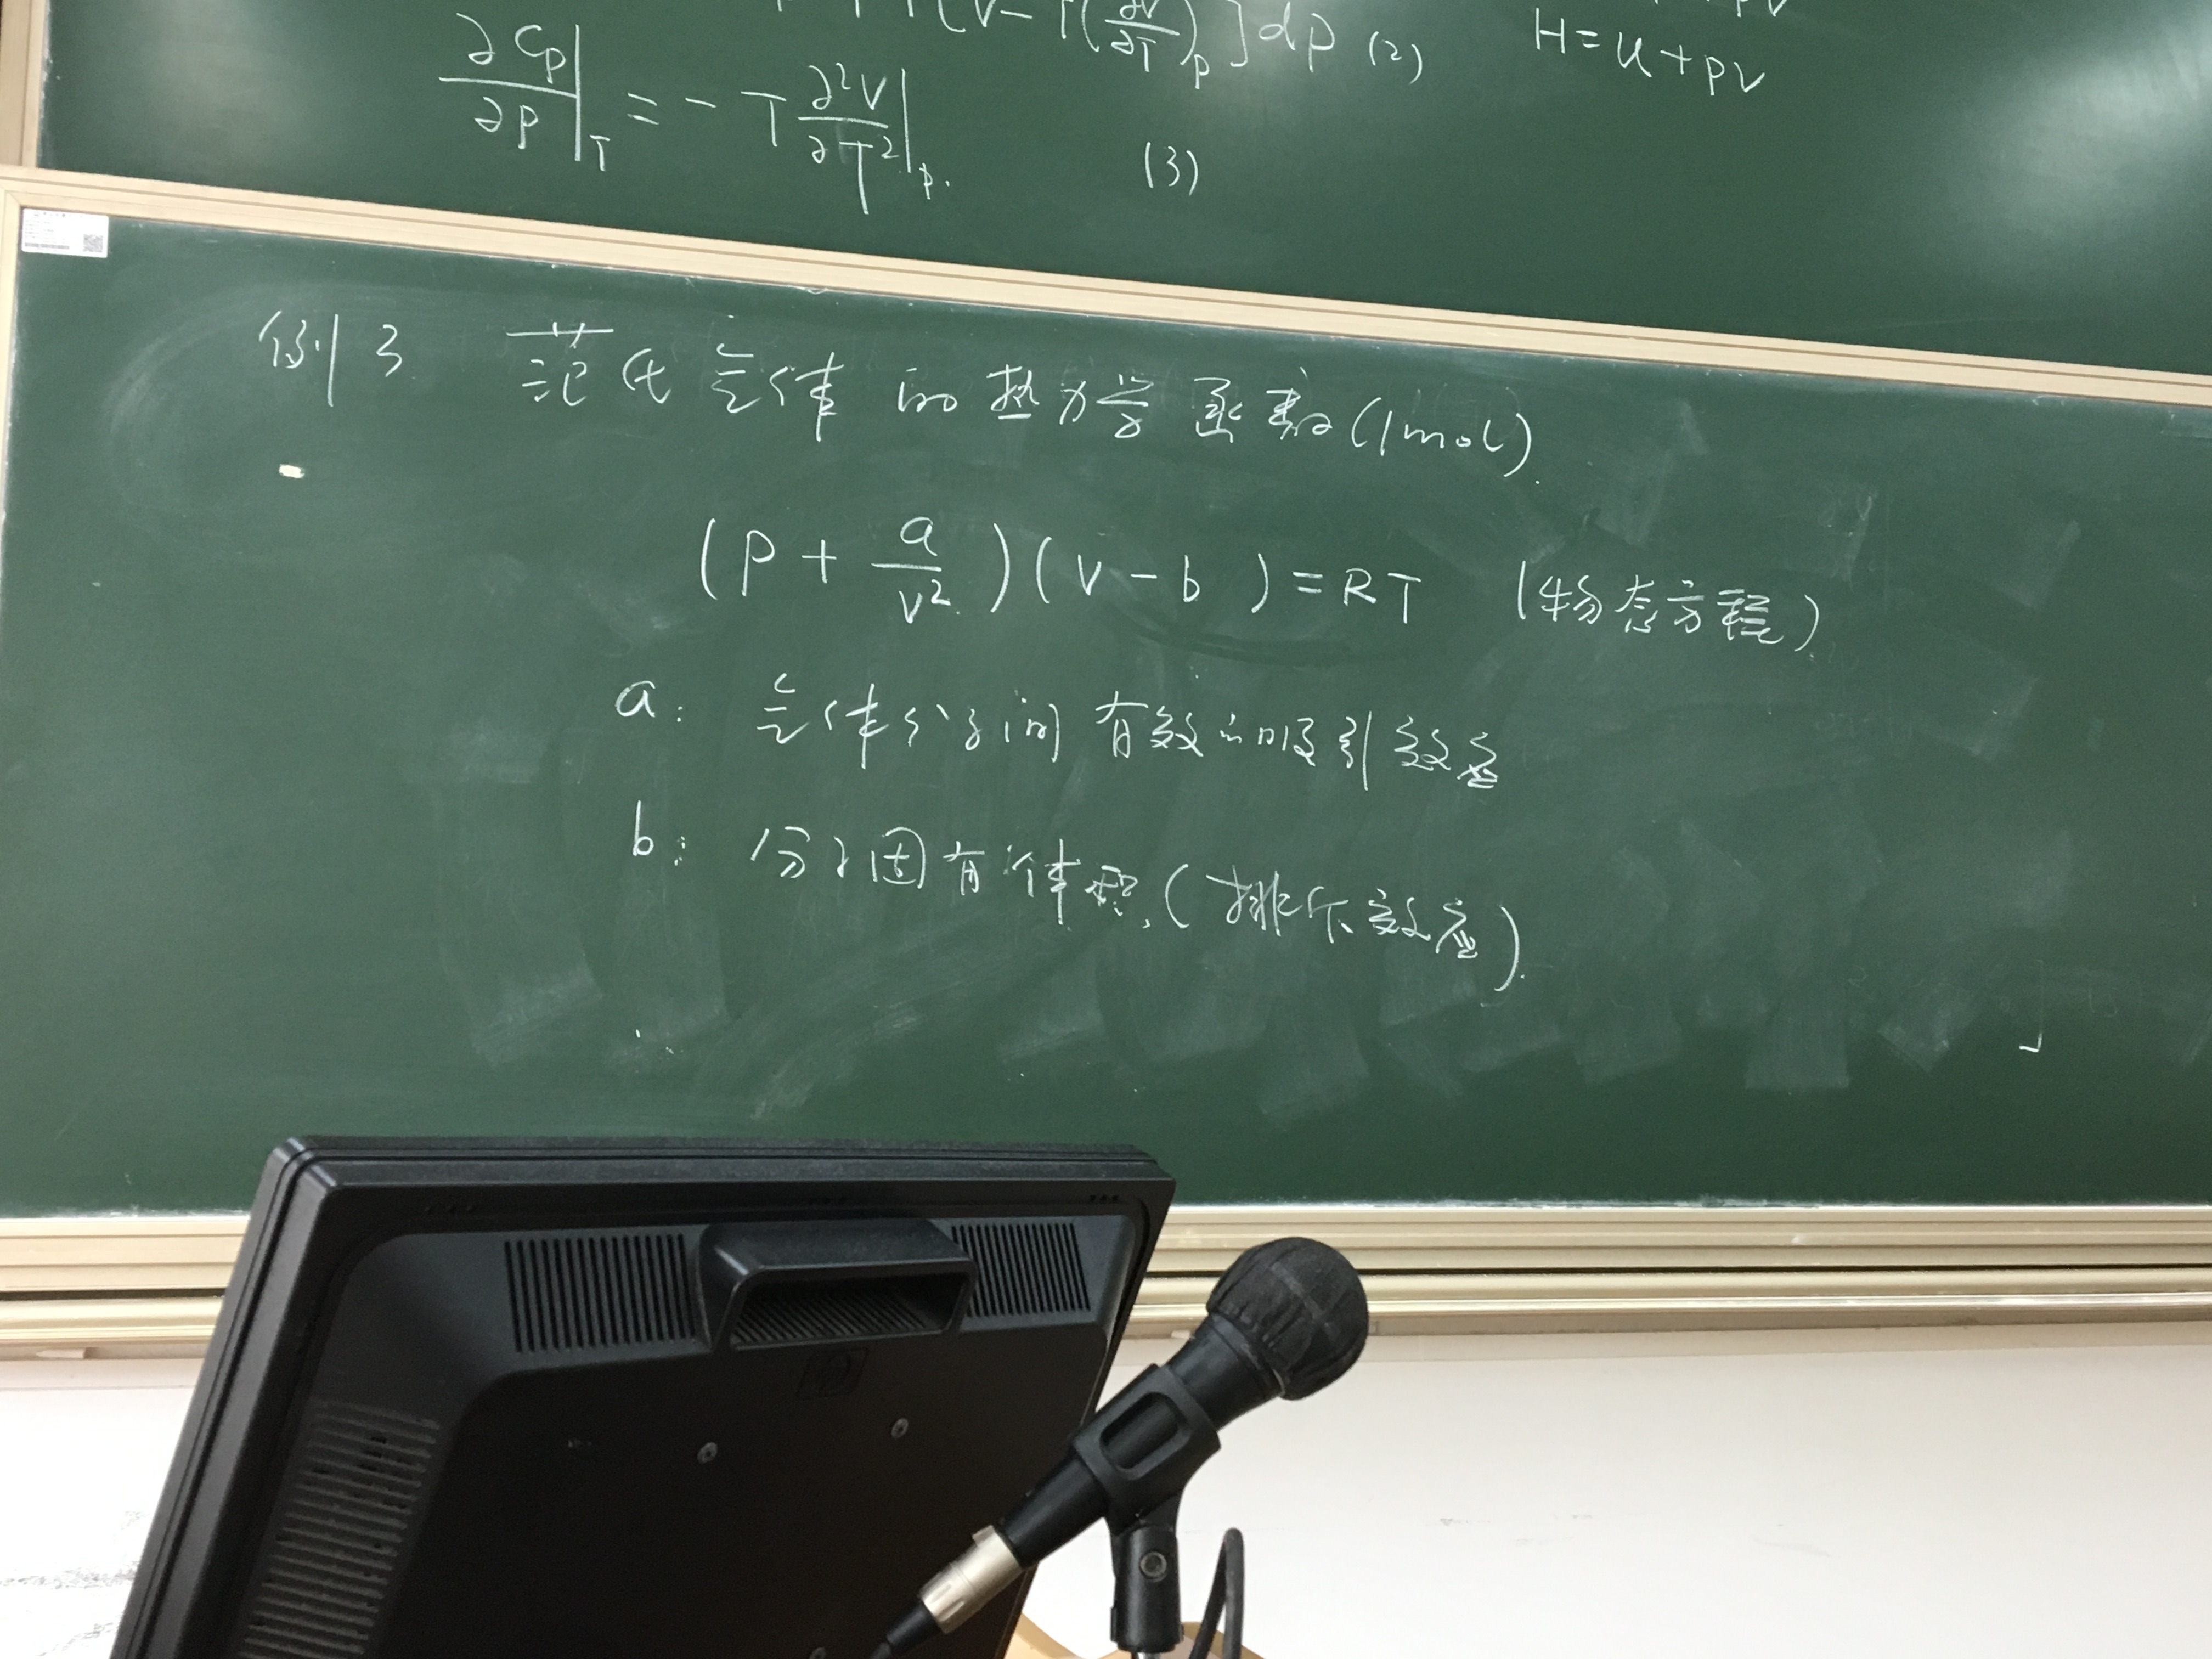 [V-T(∂V/∂T)_p]dp (2)
H=u+pv
∂Cp/∂p|_T = -T ∂²V/∂T²|_p. (3)
例3 范氏气体的热力学函数(1mol).
(p + a/v²)(v-b)=RT (物态方程).
a: 气体分子间有效的吸引效应
b: 分子固有体积.(排斥效应).